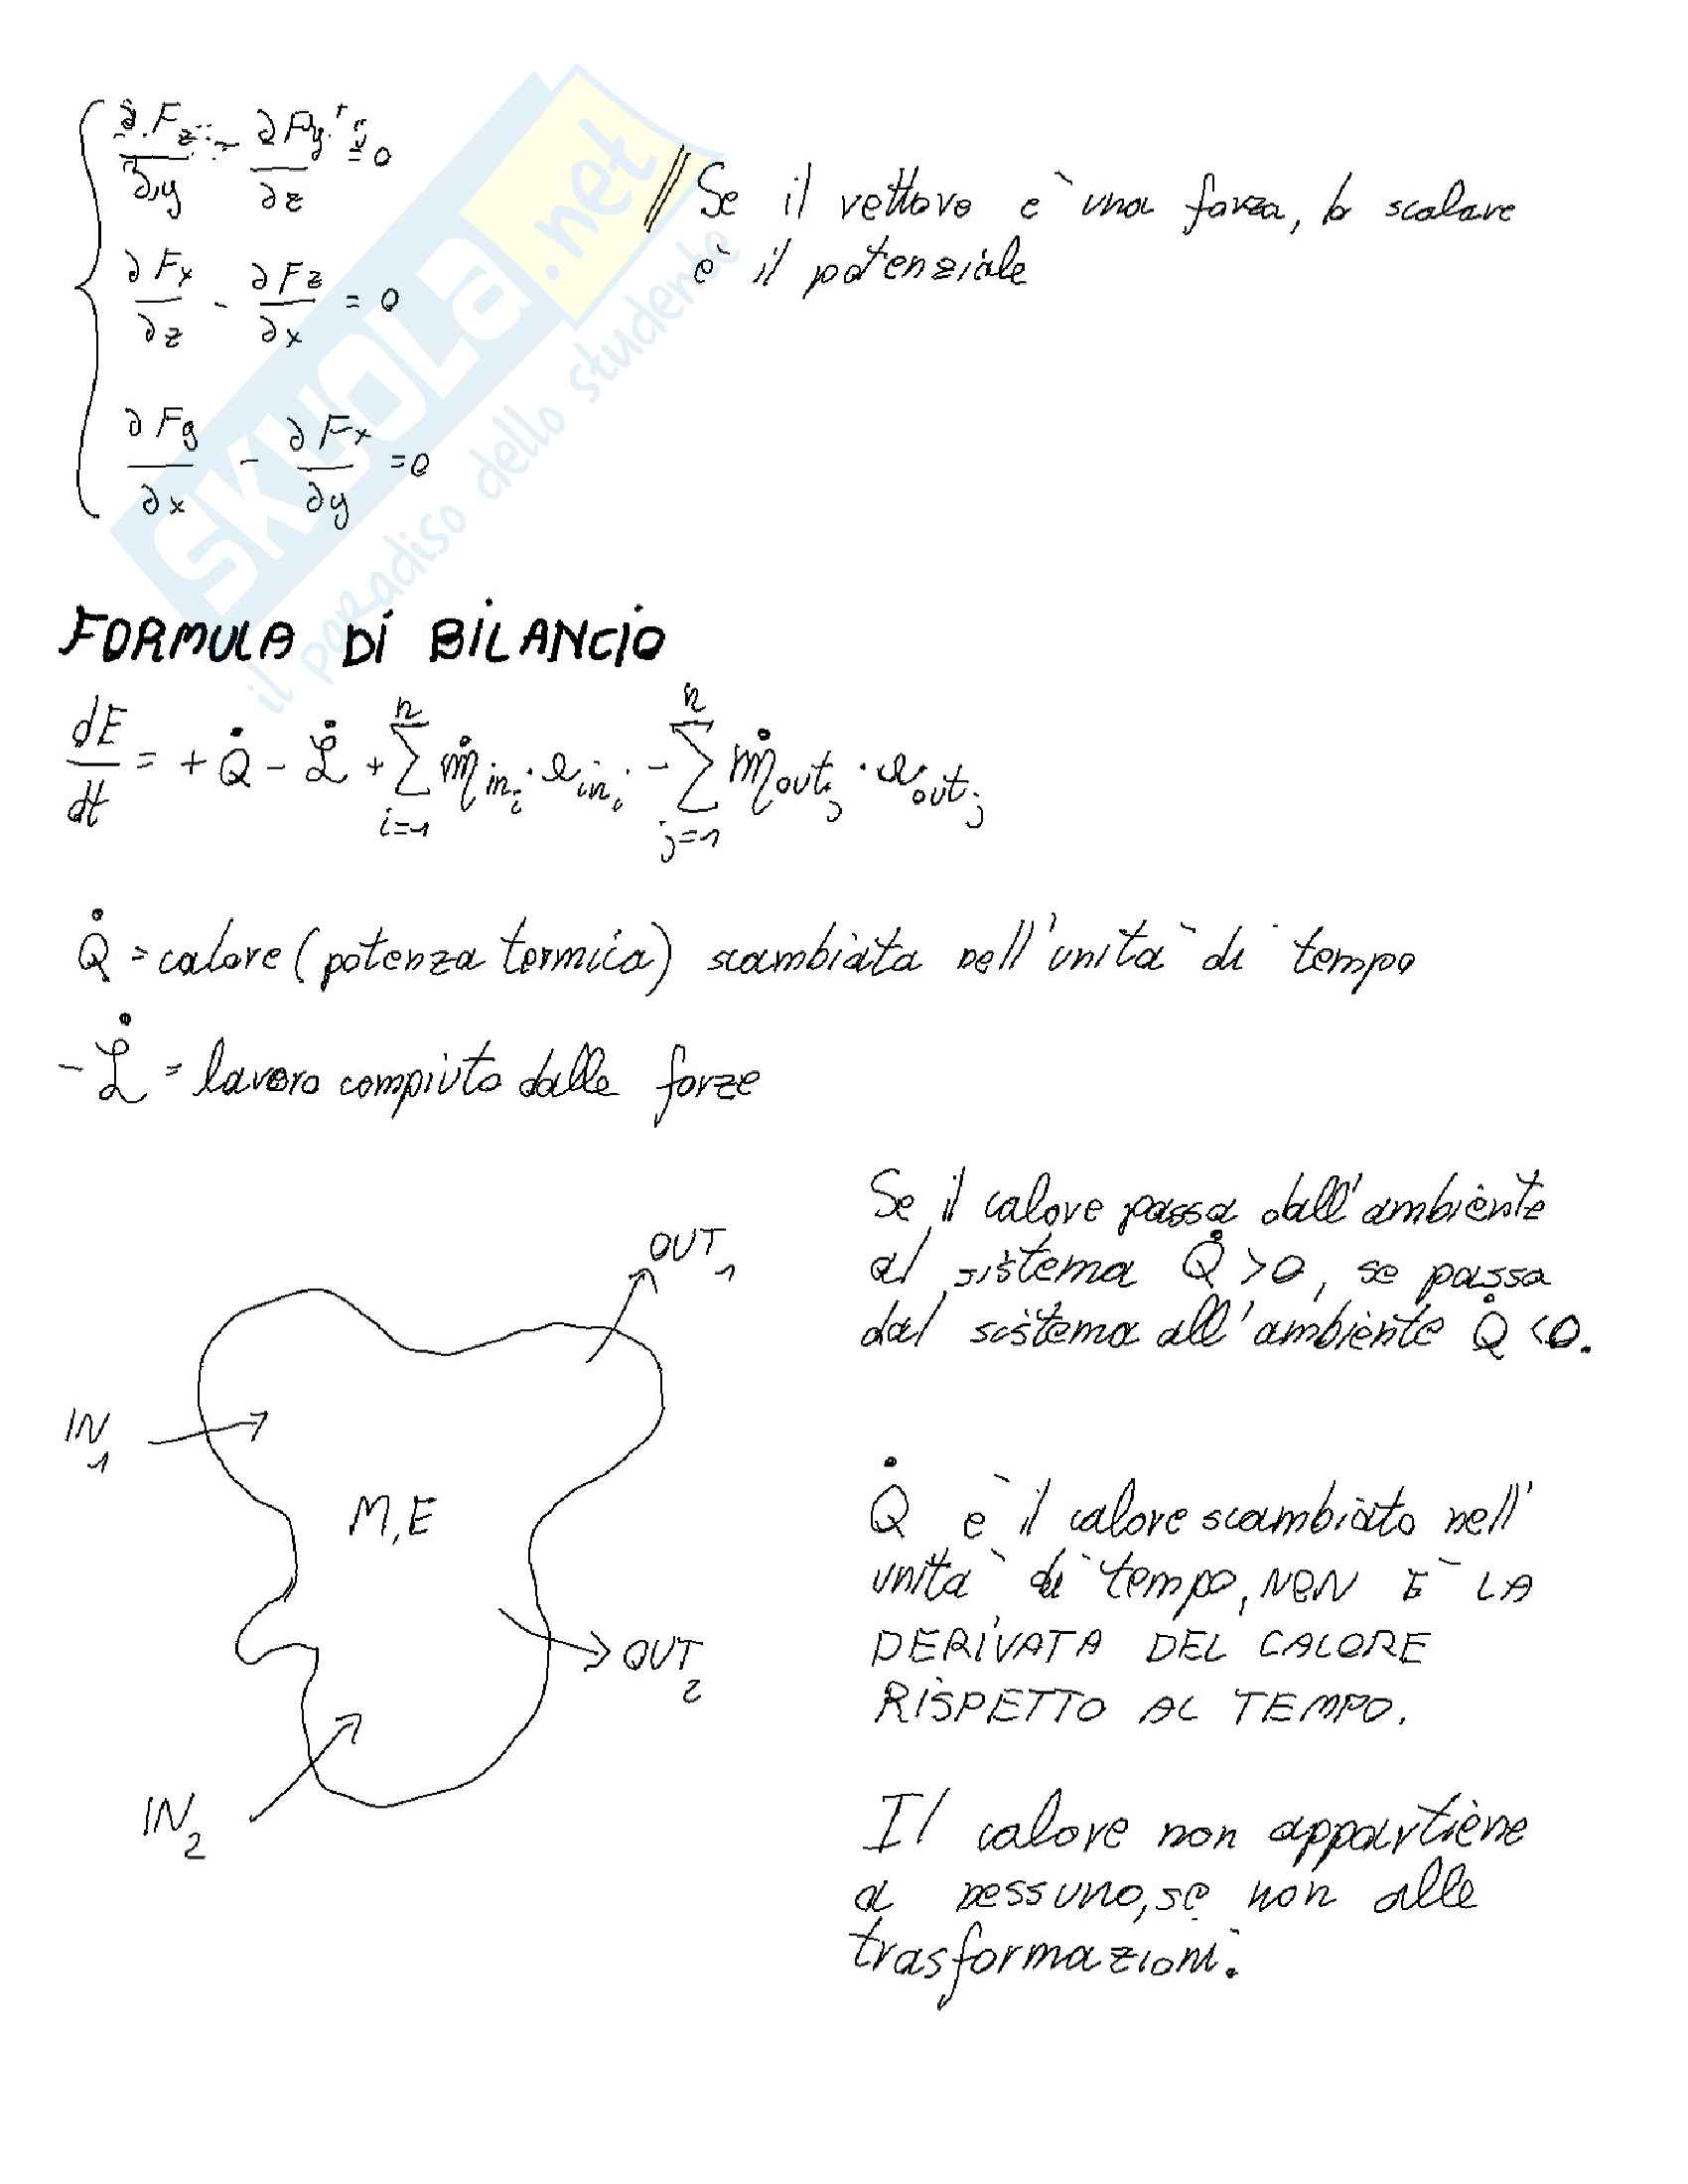 ∂Fz/∂y - ∂Fy/∂z = 0
∂Fx/∂z - ∂Fz/∂x = 0
∂Fy/∂x - ∂Fx/∂y = 0
// Se il vettore è una forza, lo scalare
è il potenziale
SKUOLA.net
il paradiso dello studente
FORMULA DI BILANCIO
dE/dt = + Q̇ - ℒ̇ + ∑_{i=1}^{n} ṁ_{in_i} · e_{in_i} - ∑_{j=1}^{n} ṁ_{out_j} · e_{out_j}
Q̇ = calore (potenza termica) scambiata nell'unità di tempo
- ℒ̇ = lavoro compiuto dalle forze
Se il calore passa dall'ambiente
al sistema Q̇ >0, se passa
dal sistema all'ambiente Q̇ <0.
OUT1
IN1
M, E
OUT2
IN2
Q̇ è il calore scambiato nell'
unità di tempo, NON È LA
DERIVATA DEL CALORE
RISPETTO AL TEMPO.
Il calore non appartiene
a nessuno, se non alle
trasformazioni.